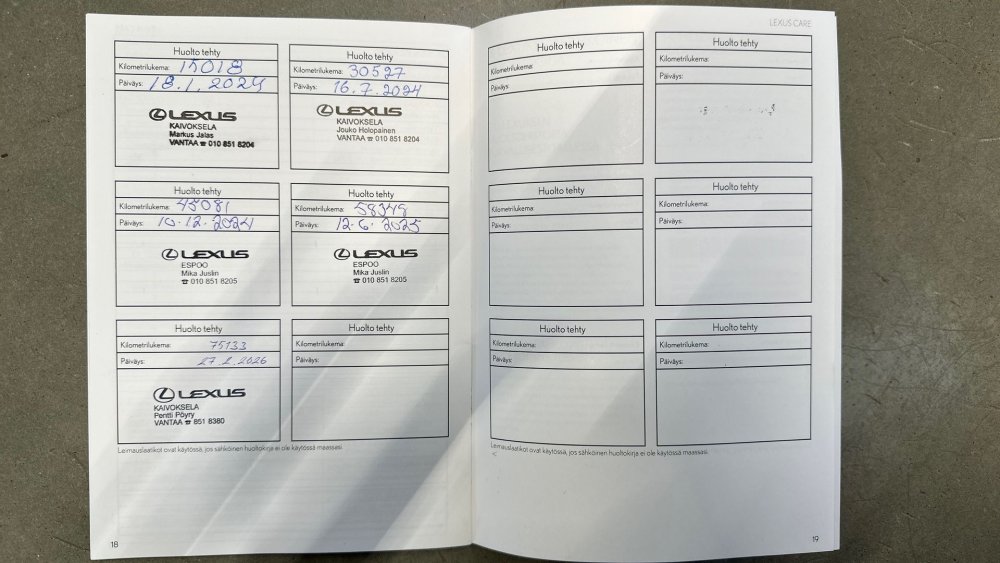 Huolto tehty
Kilometrilukema: 15018
Päiväys: 18.1.2024
LEXUS
KAIVOKSELA
Markus Jalas
VANTAA ☎ 010 851 8204
Huolto tehty
Kilometrilukema: 30527
Päiväys: 16.7.2024
LEXUS
KAIVOKSELA
Jouko Holopainen
VANTAA ☎ 010 851 8204
Huolto tehty
Kilometrilukema: 45081
Päiväys: 10.12.2024
LEXUS
ESPOO
Mika Juslin
☎ 010 851 8205
Huolto tehty
Kilometrilukema: 58348
Päiväys: 12.6.2025
LEXUS
ESPOO
Mika Juslin
☎ 010 851 8205
Huolto tehty
Kilometrilukema: 75133
Päiväys: 27.2.2026
LEXUS
KAIVOKSELA
Pentti Pöyry
VANTAA ☎ 851 8380
Huolto tehty
Kilometrilukema:
Päiväys:
Leimauslaatikot ovat käytössä, jos sähköinen huoltokirja ei ole käytössä maassasi.
18
LEXUS CARE
Huolto tehty
Kilometrilukema:
Päiväys:
Huolto tehty
Kilometrilukema:
Päiväys:
Huolto tehty
Kilometrilukema:
Päiväys:
Huolto tehty
Kilometrilukema:
Päiväys:
Huolto tehty
Kilometrilukema:
Päiväys:
Huolto tehty
Kilometrilukema:
Päiväys:
Leimauslaatikot ovat käytössä, jos sähköinen huoltokirja ei ole käytössä maassasi.
<
19